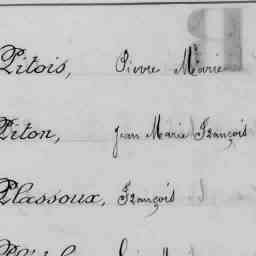 Pitois, Pierre Marie
Piton, Jean Marie François
Plassoux, François